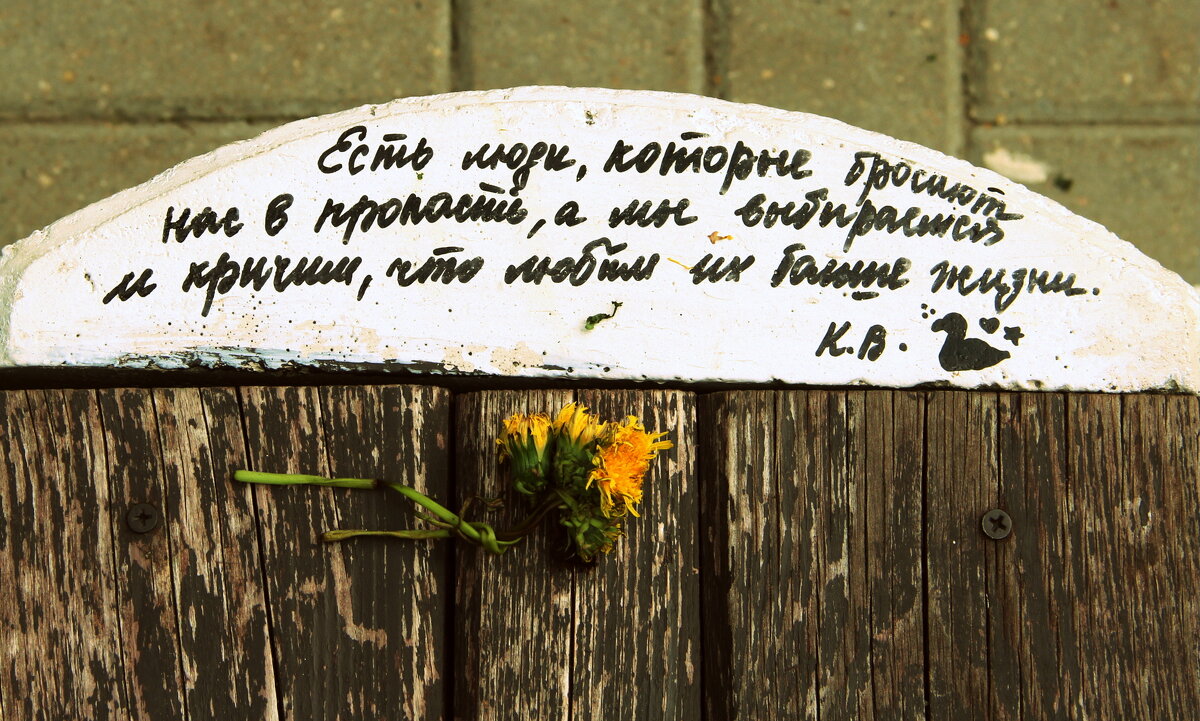 Есть люди, которые бросают
нас в пропасть, а мы выбираемся
и кричим, что любим их больше жизни.
К.В.